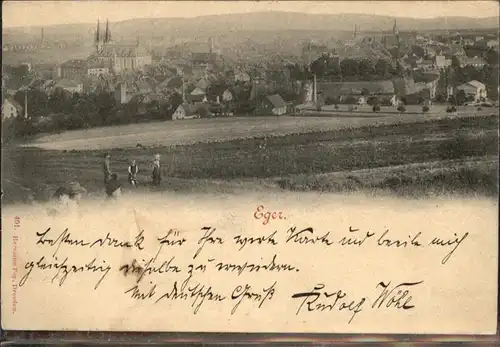 Eger.
Besten dank für Ihre werte Karte und beeile mich
gleichzeitig dieselbe zu erwidern.
Mit deutschen Gruß
Rudolf Wöhl